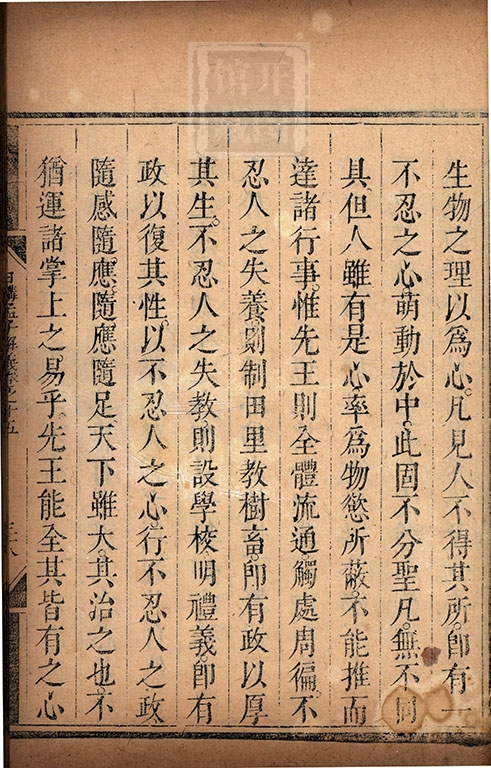 生物之理以爲心。凡見人不得其所。卽有一
不忍之心萌動於中。此固不分聖凡。無不同
具。但人雖有是心。率爲物慾所蔽。不能推而
達諸行事。惟先王則全體流通。觸處周徧。不
忍人之失養。則制田里教樹畜。卽有政以厚
其生。不忍人之失教。則設學校明禮義。卽有
政以復其性。以不忍人之心。行不忍人之政
隨感隨應。隨應隨足。天下雖大。其治之也。不
猶運諸掌上之易乎。先王能全其皆有之心